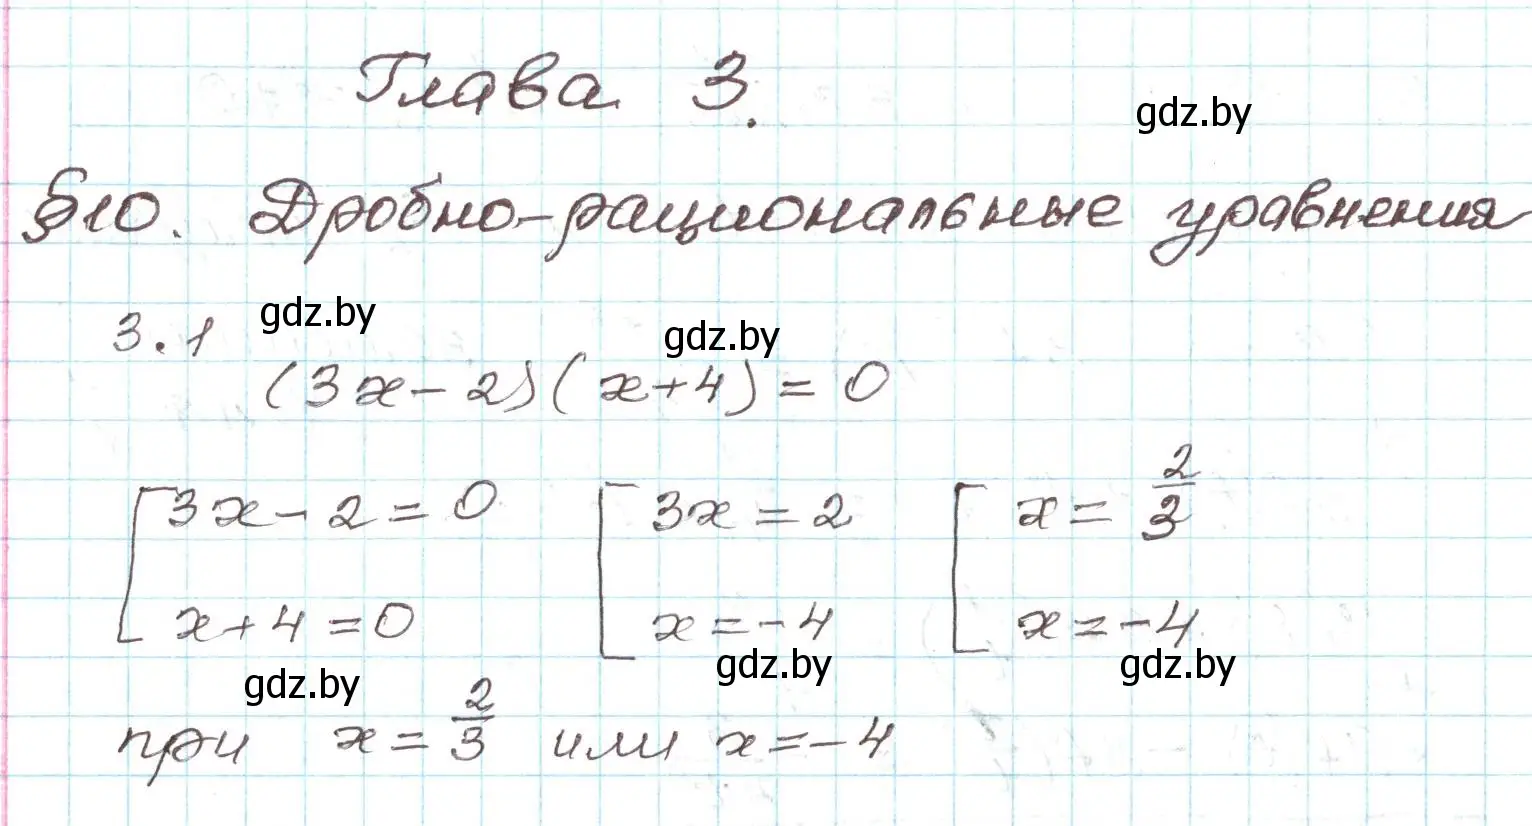 Глава 3.
gdz.by
§10. Дробно-рациональные уравнения
3.1 gdz.by gdz.by
(3x-2)(x+4)=0
[3x-2=0 [3x=2 [x=2/3
x+4=0 x=-4 x=-4
gdz.by gdz.by gdz.by
при x=2/3 или x=-4